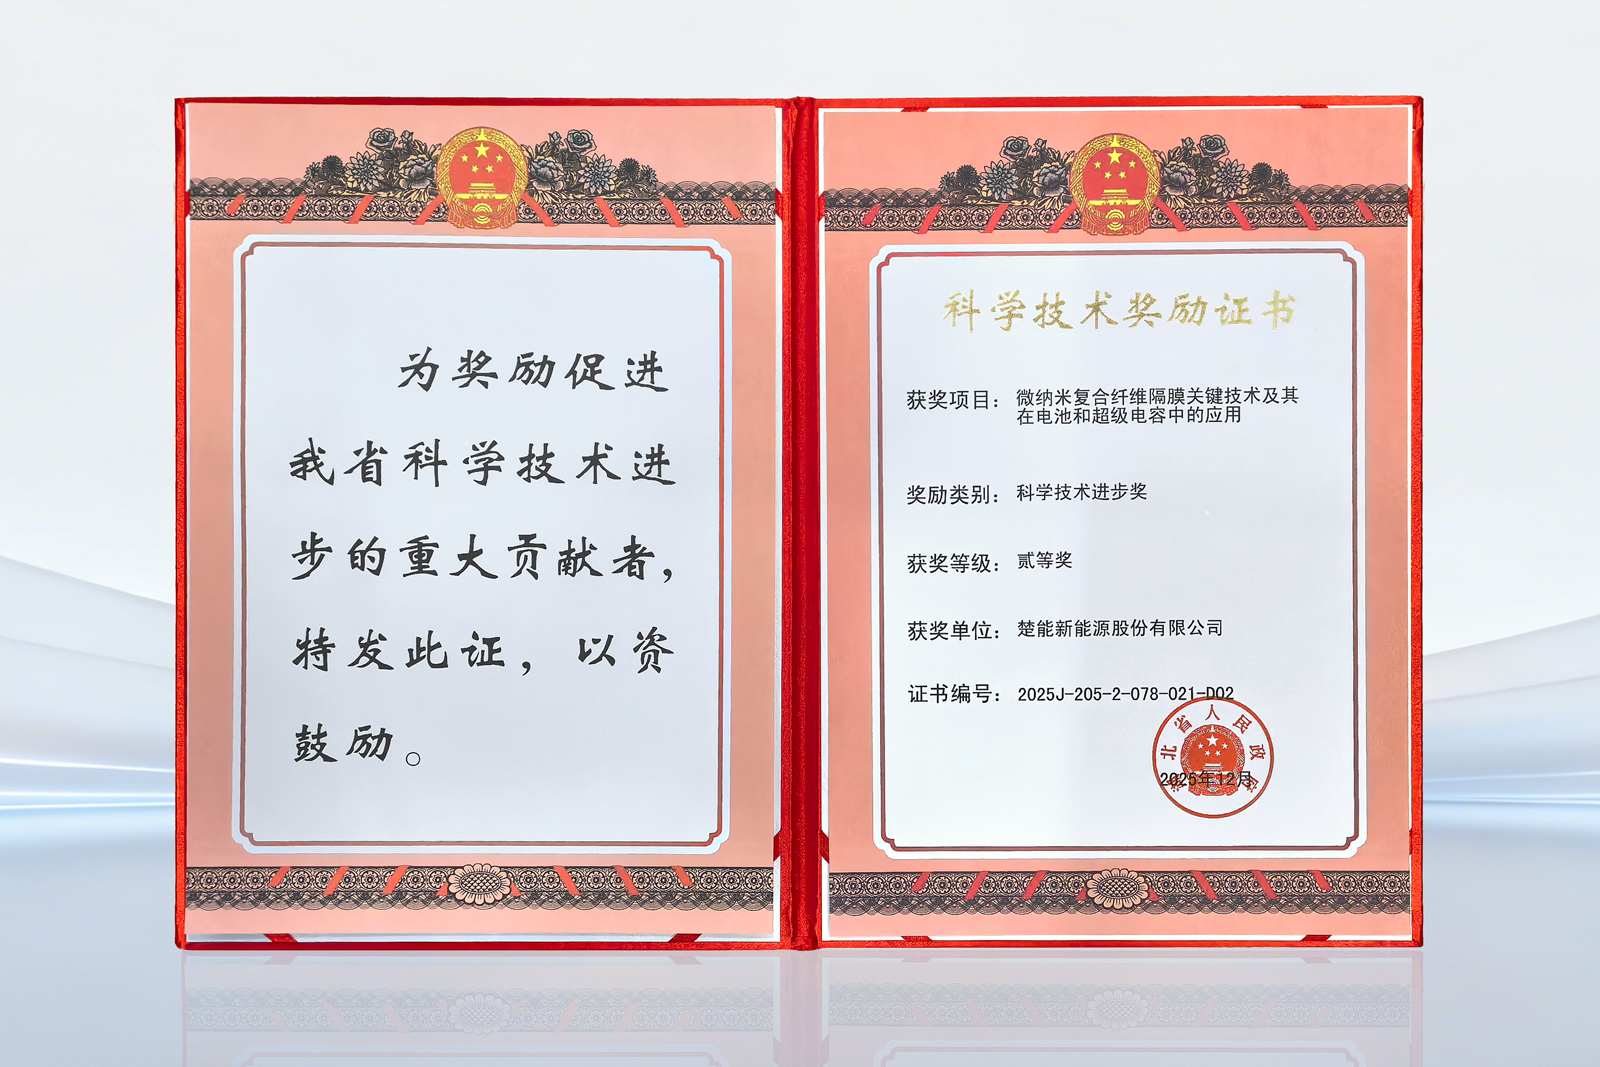 为奖励促进
我省科学技术进
步的重大贡献者，
特发此证，以资
鼓励。
科学技术奖励证书
获奖项目：微纳米复合纤维隔膜关键技术及其
在电池和超级电容中的应用
奖励类别：科学技术进步奖
获奖等级：贰等奖
获奖单位：楚能新能源股份有限公司
证书编号：2025J-205-2-078-021-D02
湖北省人民政府
2025年12月